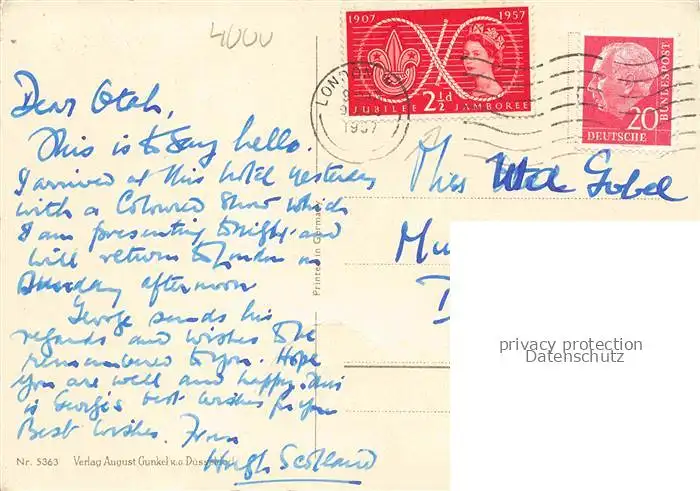 4000
1907 1957
JUBILEE 2½d JAMBOREE
LONDON
1957
BUNDESPOST
20
DEUTSCHE
Dear Utah,
This is to say hello.
I arrived at this hotel yesterday
with a Coloured Show which
I am presenting tonight and
will return to London on
afternoon
George sends his
regards and wishes to be
remembered to you. Hope
you are well and happy. This
is George's best wishes for you
Best Wishes. From
Hugh Scotland
Miss
Mu
D
Printed in Germany
privacy protection
Datenschutz
Nr. 5363 Verlag August Gunkel v.o. Düsseldorf